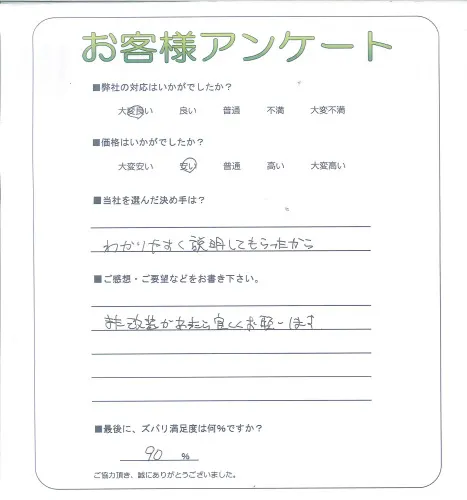 お客様アンケート
■弊社の対応はいかがでしたか?
大変良い 良い 普通 不満 大変不満
■価格はいかがでしたか?
大変安い 安い 普通 高い 大変高い
■当社を選んだ決め手は?
わかりやすく説明してもらったから
■ご感想・ご要望などをお書き下さい。
また改装があったら宜しくお願いします
■最後に、ズバリ満足度は何%ですか?
90 %
ご協力頂き、誠にありがとうございました。